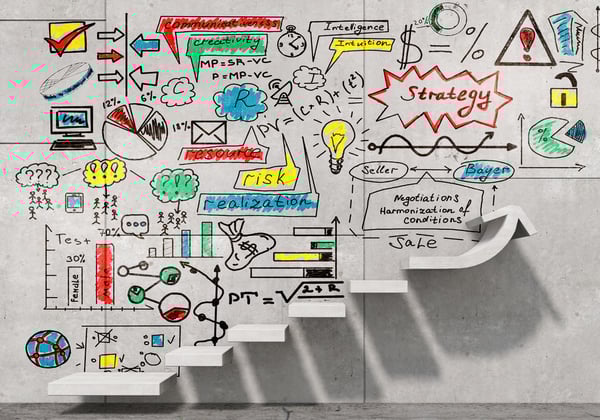 communicativeness
creativity
MP=SR-VC
P=MP-VC
Inteligence
Intuition
20%
$ = %
!
C
R
I
12%
6%
18%
PV=(C+R)+(t²)
Strategy
%
resource
risk
realization
Seller
Bayer
Negotiations
Harmonization of
conditions
Sale
???
!!!
!?!
Test
70%
30%
Female
Male
$
PT=√2+R